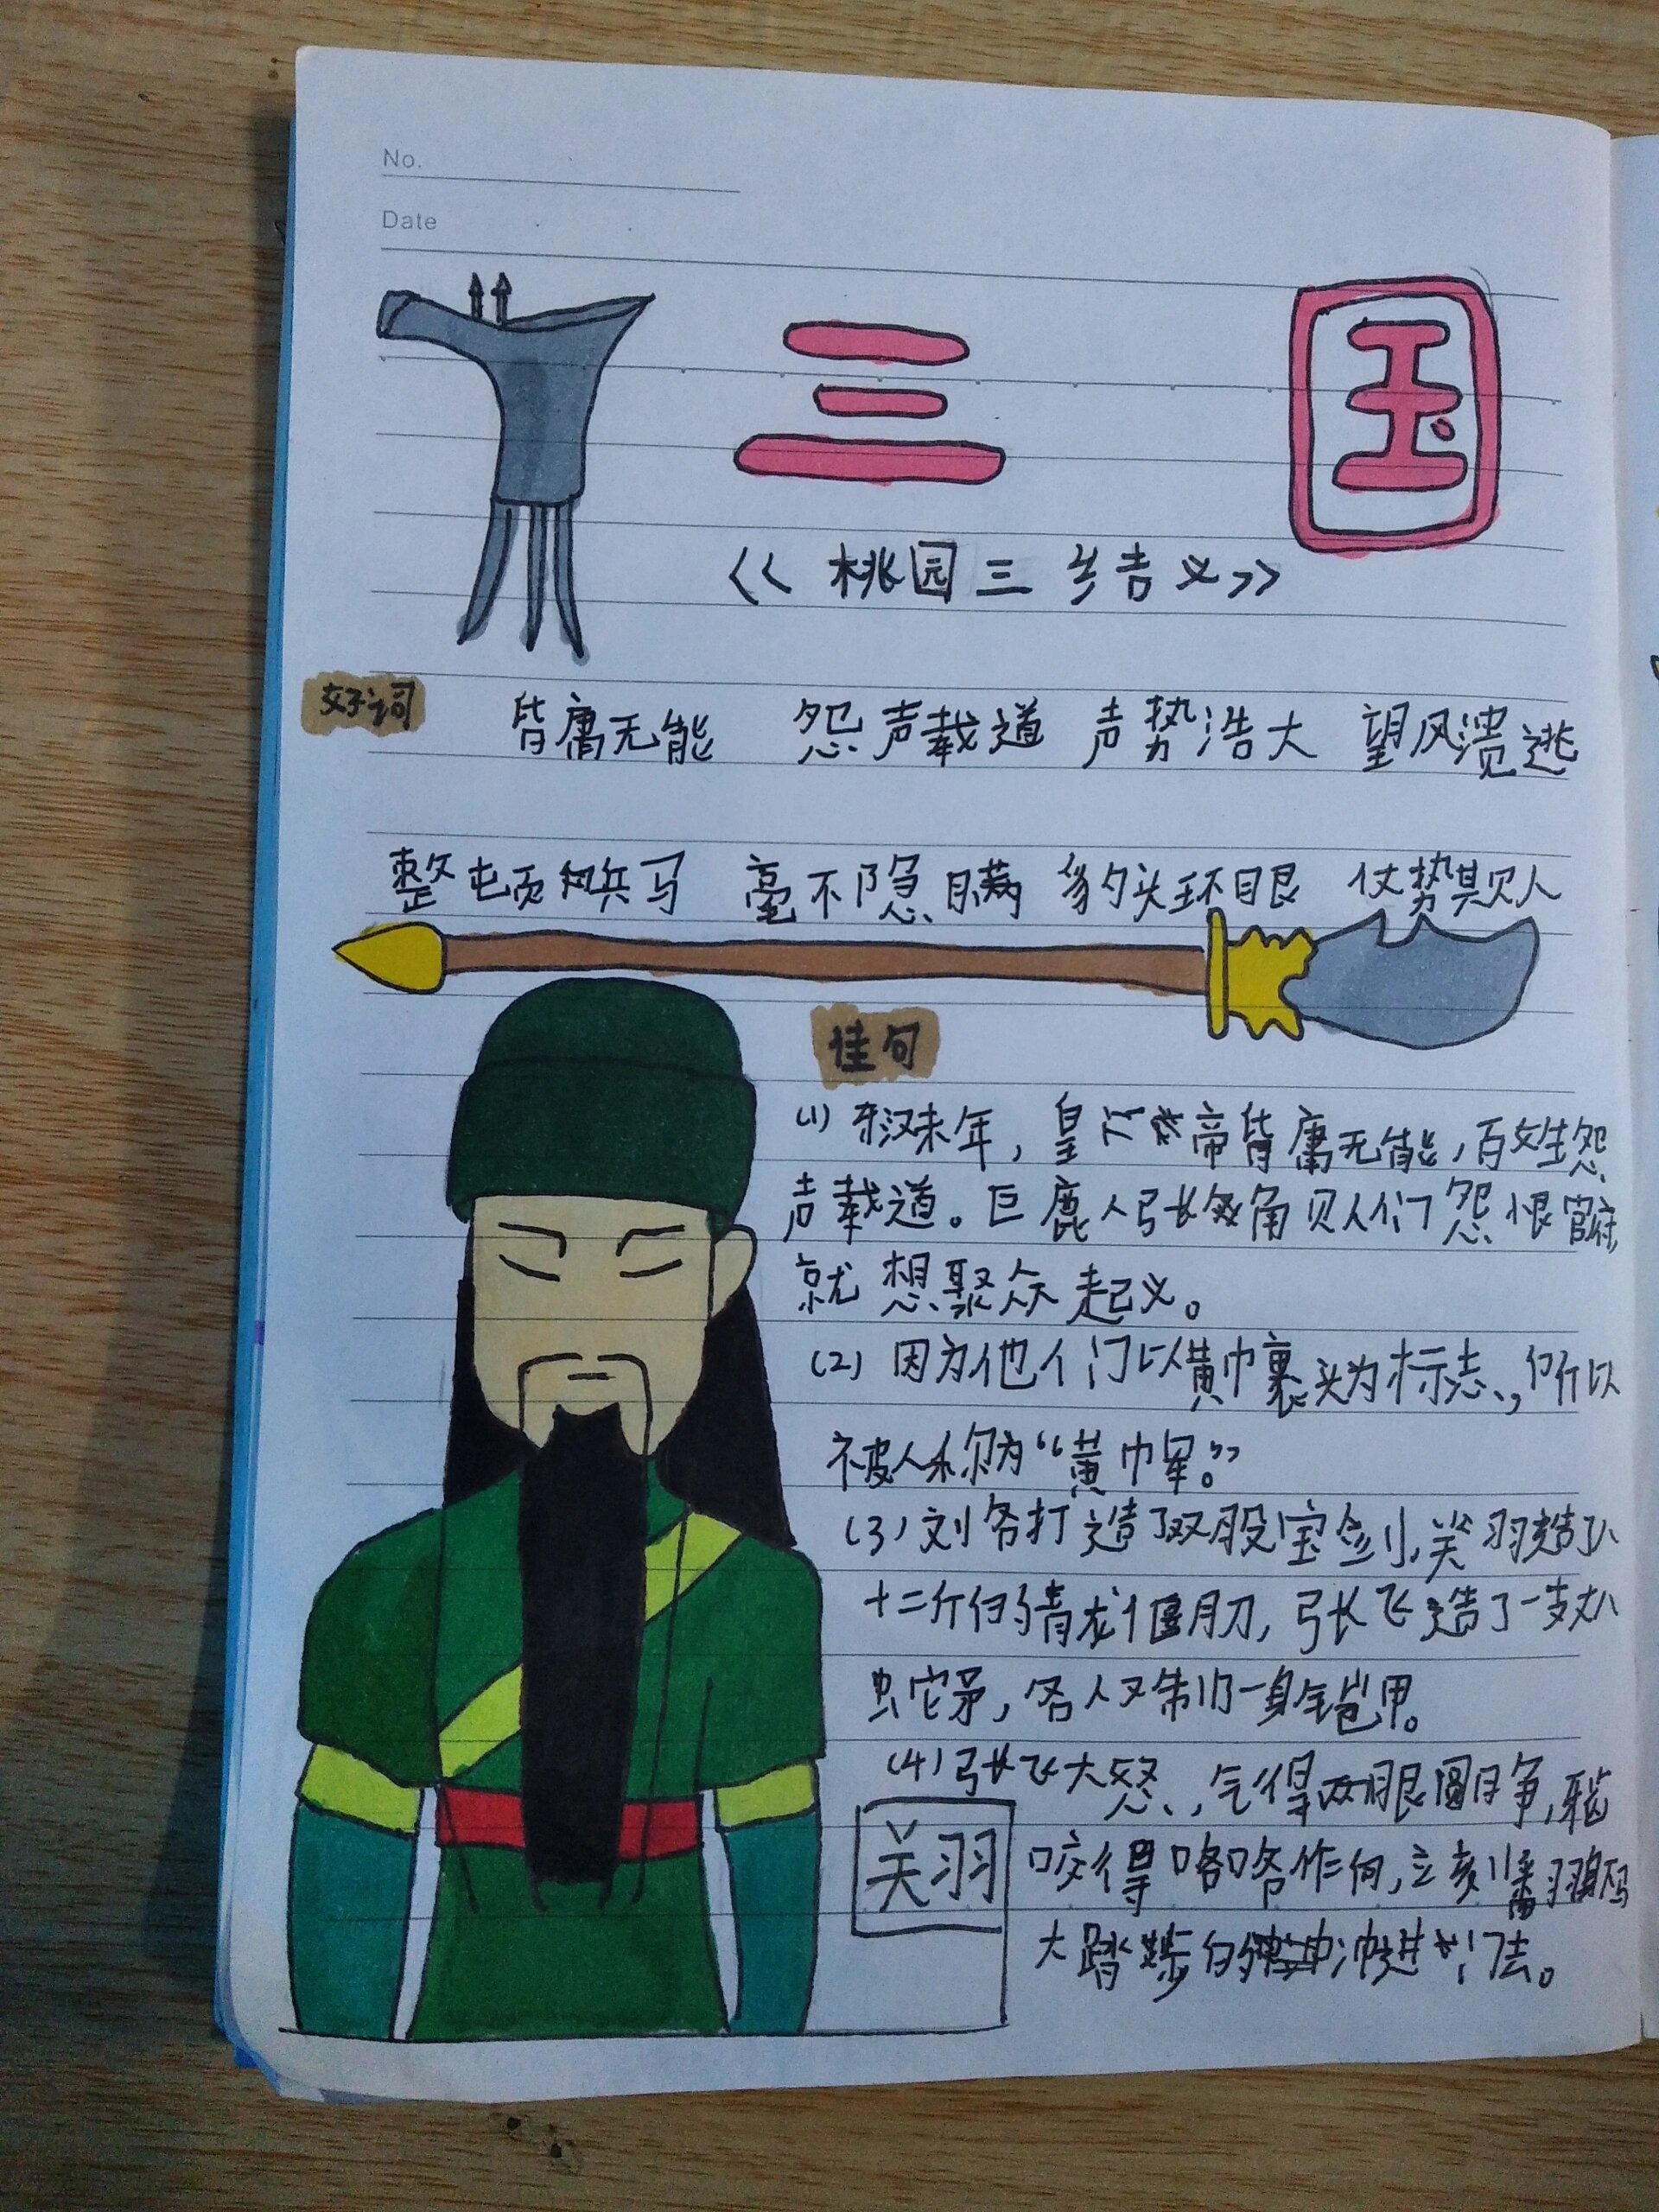 No.
Date
三 国
《桃园三结义》
好词 皆庸无能 怨声载道 声势浩大 望风溃逃
整屯顿兵马 毫不隐瞒 豹头环眼 仗势欺人
佳句
(1) 东汉末年，皇帝皆庸无能，百姓怨
声载道。巨鹿人张角见人们怨恨官府，
就想聚众起义。
(2) 因为他们以黄巾裹头为标志，所以
被人称为“黄巾军。”
(3) 刘备打造了双股宝剑，关羽造了八
十二斤的青龙偃月刀，张飞造了一支丈八
蛇矛，各人又制了一身铠甲。
(4) 张飞大怒，气得两眼圆睁，牙齿
关羽
咬得咯咯作响，立刻翻
大踏步的冲进去。